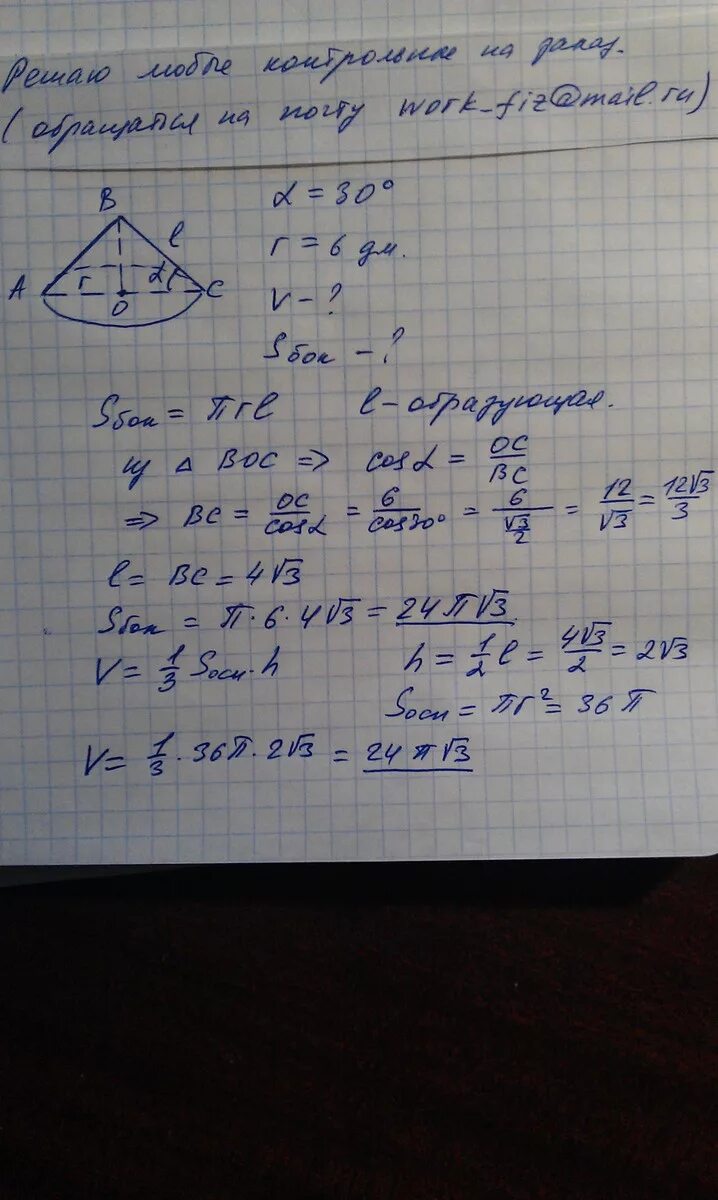 Решаю любые контрольные на заказ.
(обращаться на почту work_fiz@mail.ru)
B
l
A
r
α
C
O
α = 30°
r = 6 дм.
V - ?
Sбок - ?
Sбок = πrl    l - образующая.
из △ BOC => cosα = OC/BC
=> BC = OC/cosα = 6/cos30° = 6/(√3/2) = 12/√3 = 12√3/3
l = BC = 4√3
Sбок = π·6·4√3 = 24π√3
V = 1/3 Sосн·h    h = 1/2 l = 4√3/2 = 2√3
Sосн = πr² = 36π
V = 1/3·36π·2√3 = 24π√3